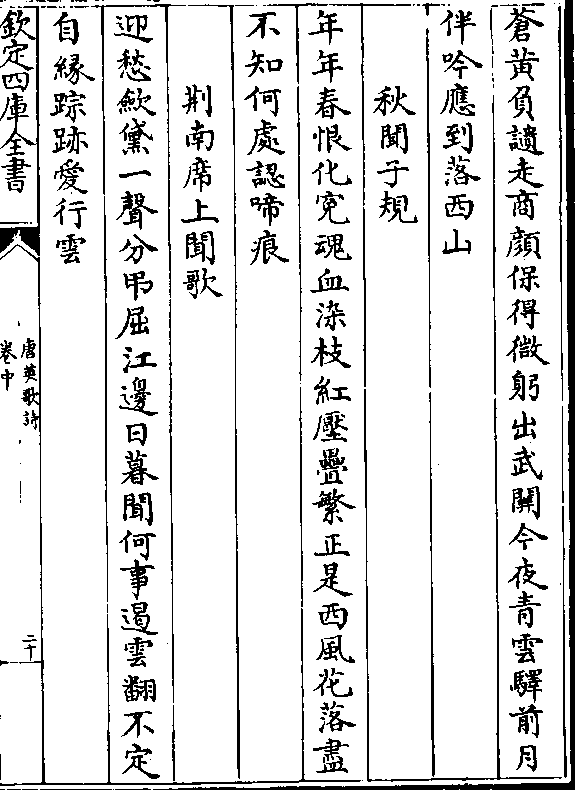 蒼黄負譴走商顔保得微躬出武關今夜青雲驛前月
伴吟應到落西山
秋聞子規
年年春恨化寃魂血染枝紅壓疊繁正是西風花落盡
不知何處認啼痕
荆南席上聞歌
迎愁歛黛一聲分弔屈江邊日暮聞何事遏雲翻不定
自縁踪跡愛行雲
欽定四庫全書
唐英歌詩
卷中
二十